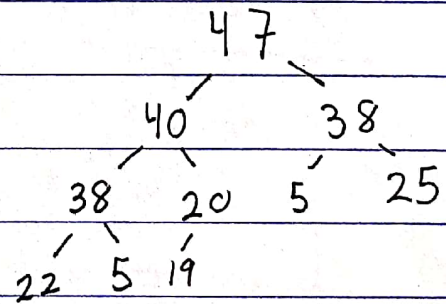 47
40 38
38 20 5 25
22 5 19